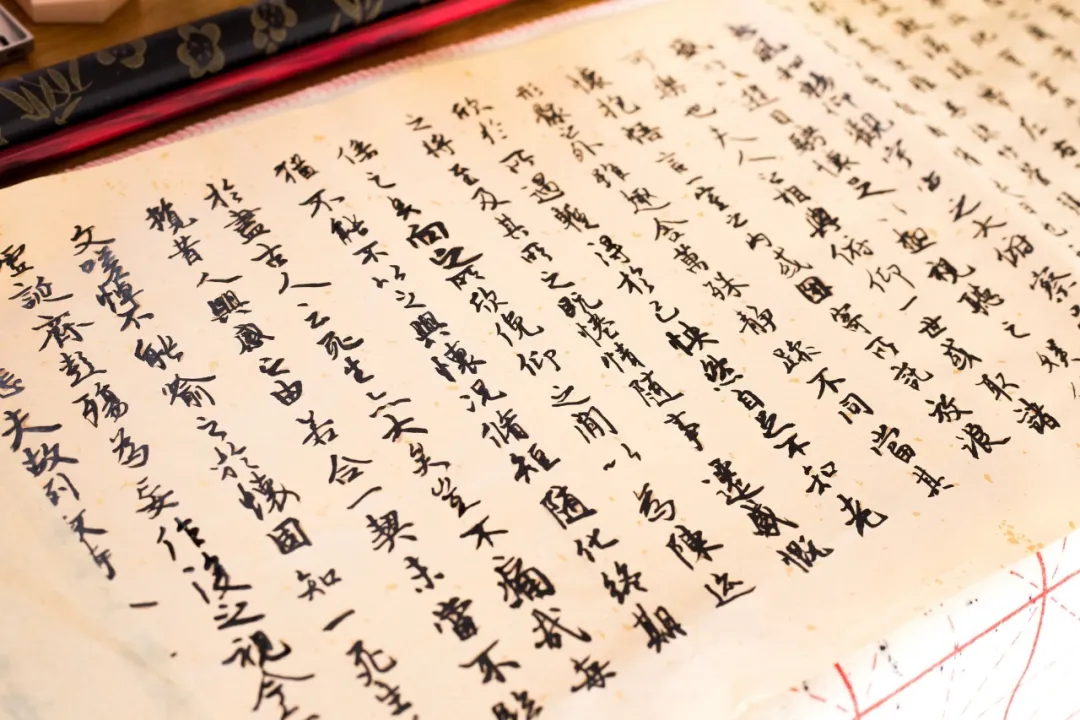 風和暢仰觀宇宙之大俯察
盛所以遊目騁懷足以極視聽之娛
可樂也夫人之相與俯仰一世或取諸
懷抱悟言一室之內或因寄所託放浪
形骸之外雖趣舍萬殊靜躁不同當其
欣於所遇暫得於己怏然自足不知老
之將至及其所之既倦情隨事遷感慨
係之矣向之所欣俛仰之間以為陳迹
猶不能不以之興懷況脩短隨化終期
於盡古人云死生亦大矣豈不痛哉每
攬昔人興感之由若合一契未嘗不臨
文嗟悼不能喻之於懷固知一死生
虛誕齊彭殤為妄作後之視今
悲夫故列敘時